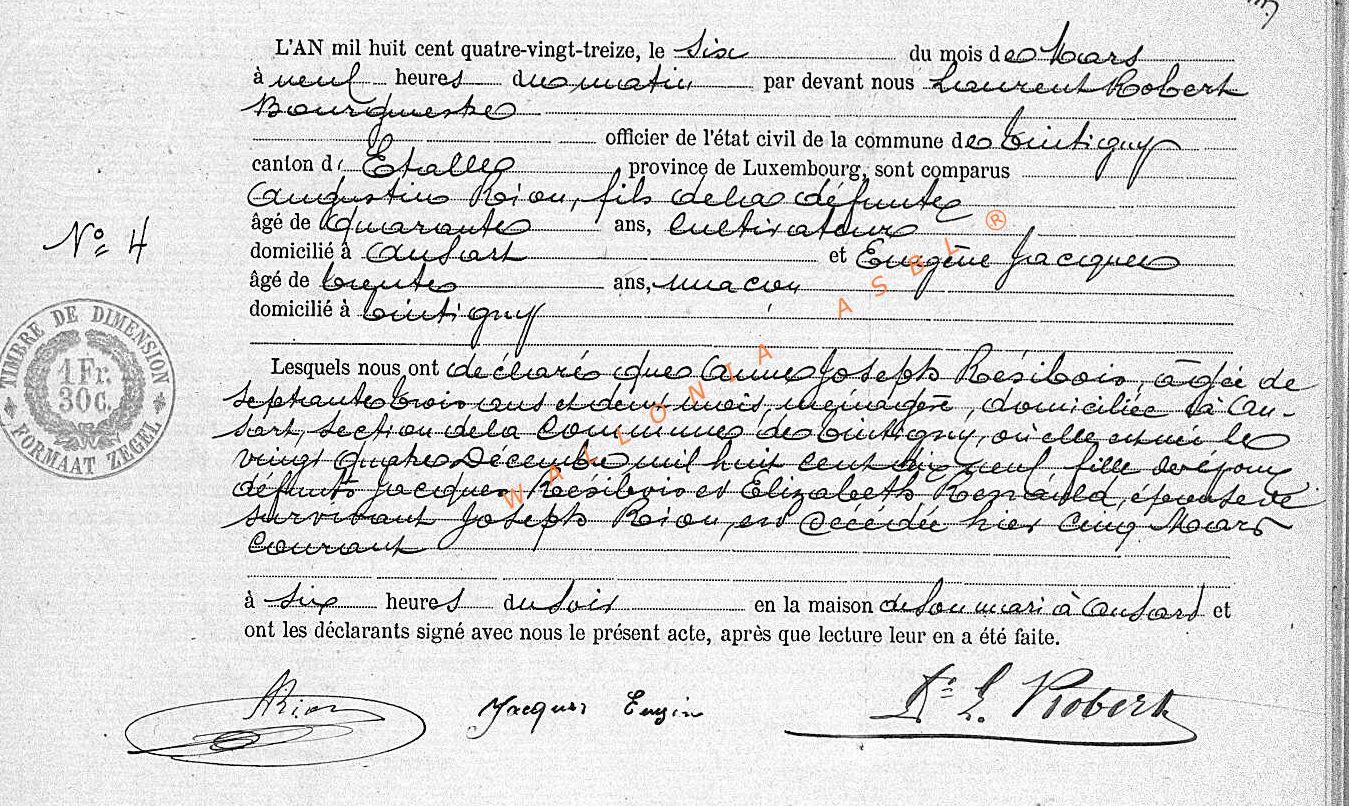 L'AN mil huit cent quatre-vingt-treize, le six du mois de Mars
à neuf heures du matin par devant nous Laurent Robert
Bourgmestre
officier de l'état civil de la commune de Tintigny
canton d' Etalle province de Luxembourg, sont comparus
Augustin Rion, fils de la défunte
âgé de quarante ans, cultivateur
domicilié à Ansart et Eugène Jacques
N° 4
âgé de trente ans, maçon
domicilié à Tintigny
TIMBRE DE DIMENSION
1 Fr.
30 C.
FORMAAT ZEGEL
Lesquels nous ont déclaré que Anne Joseph Résibois, âgée de
septante trois ans et demi mois, ménagère, domiciliée à An-
sart, section de la Commune de Tintigny, où elle est née le
vingt quatre Décembre mil huit cent dix neuf fille des époux
défunts Jacques Résibois et Elizabeth Renauld, épouse de
survivant Joseph Rion, est décédée hier cinq Mars
courant
à six heures du soir en la maison de son mari à Ansart et
ont les déclarants signé avec nous le présent acte, après que lecture leur en a été faite.
ARion Jacques Eugin L. Robert
WALLONIA ASBL ®